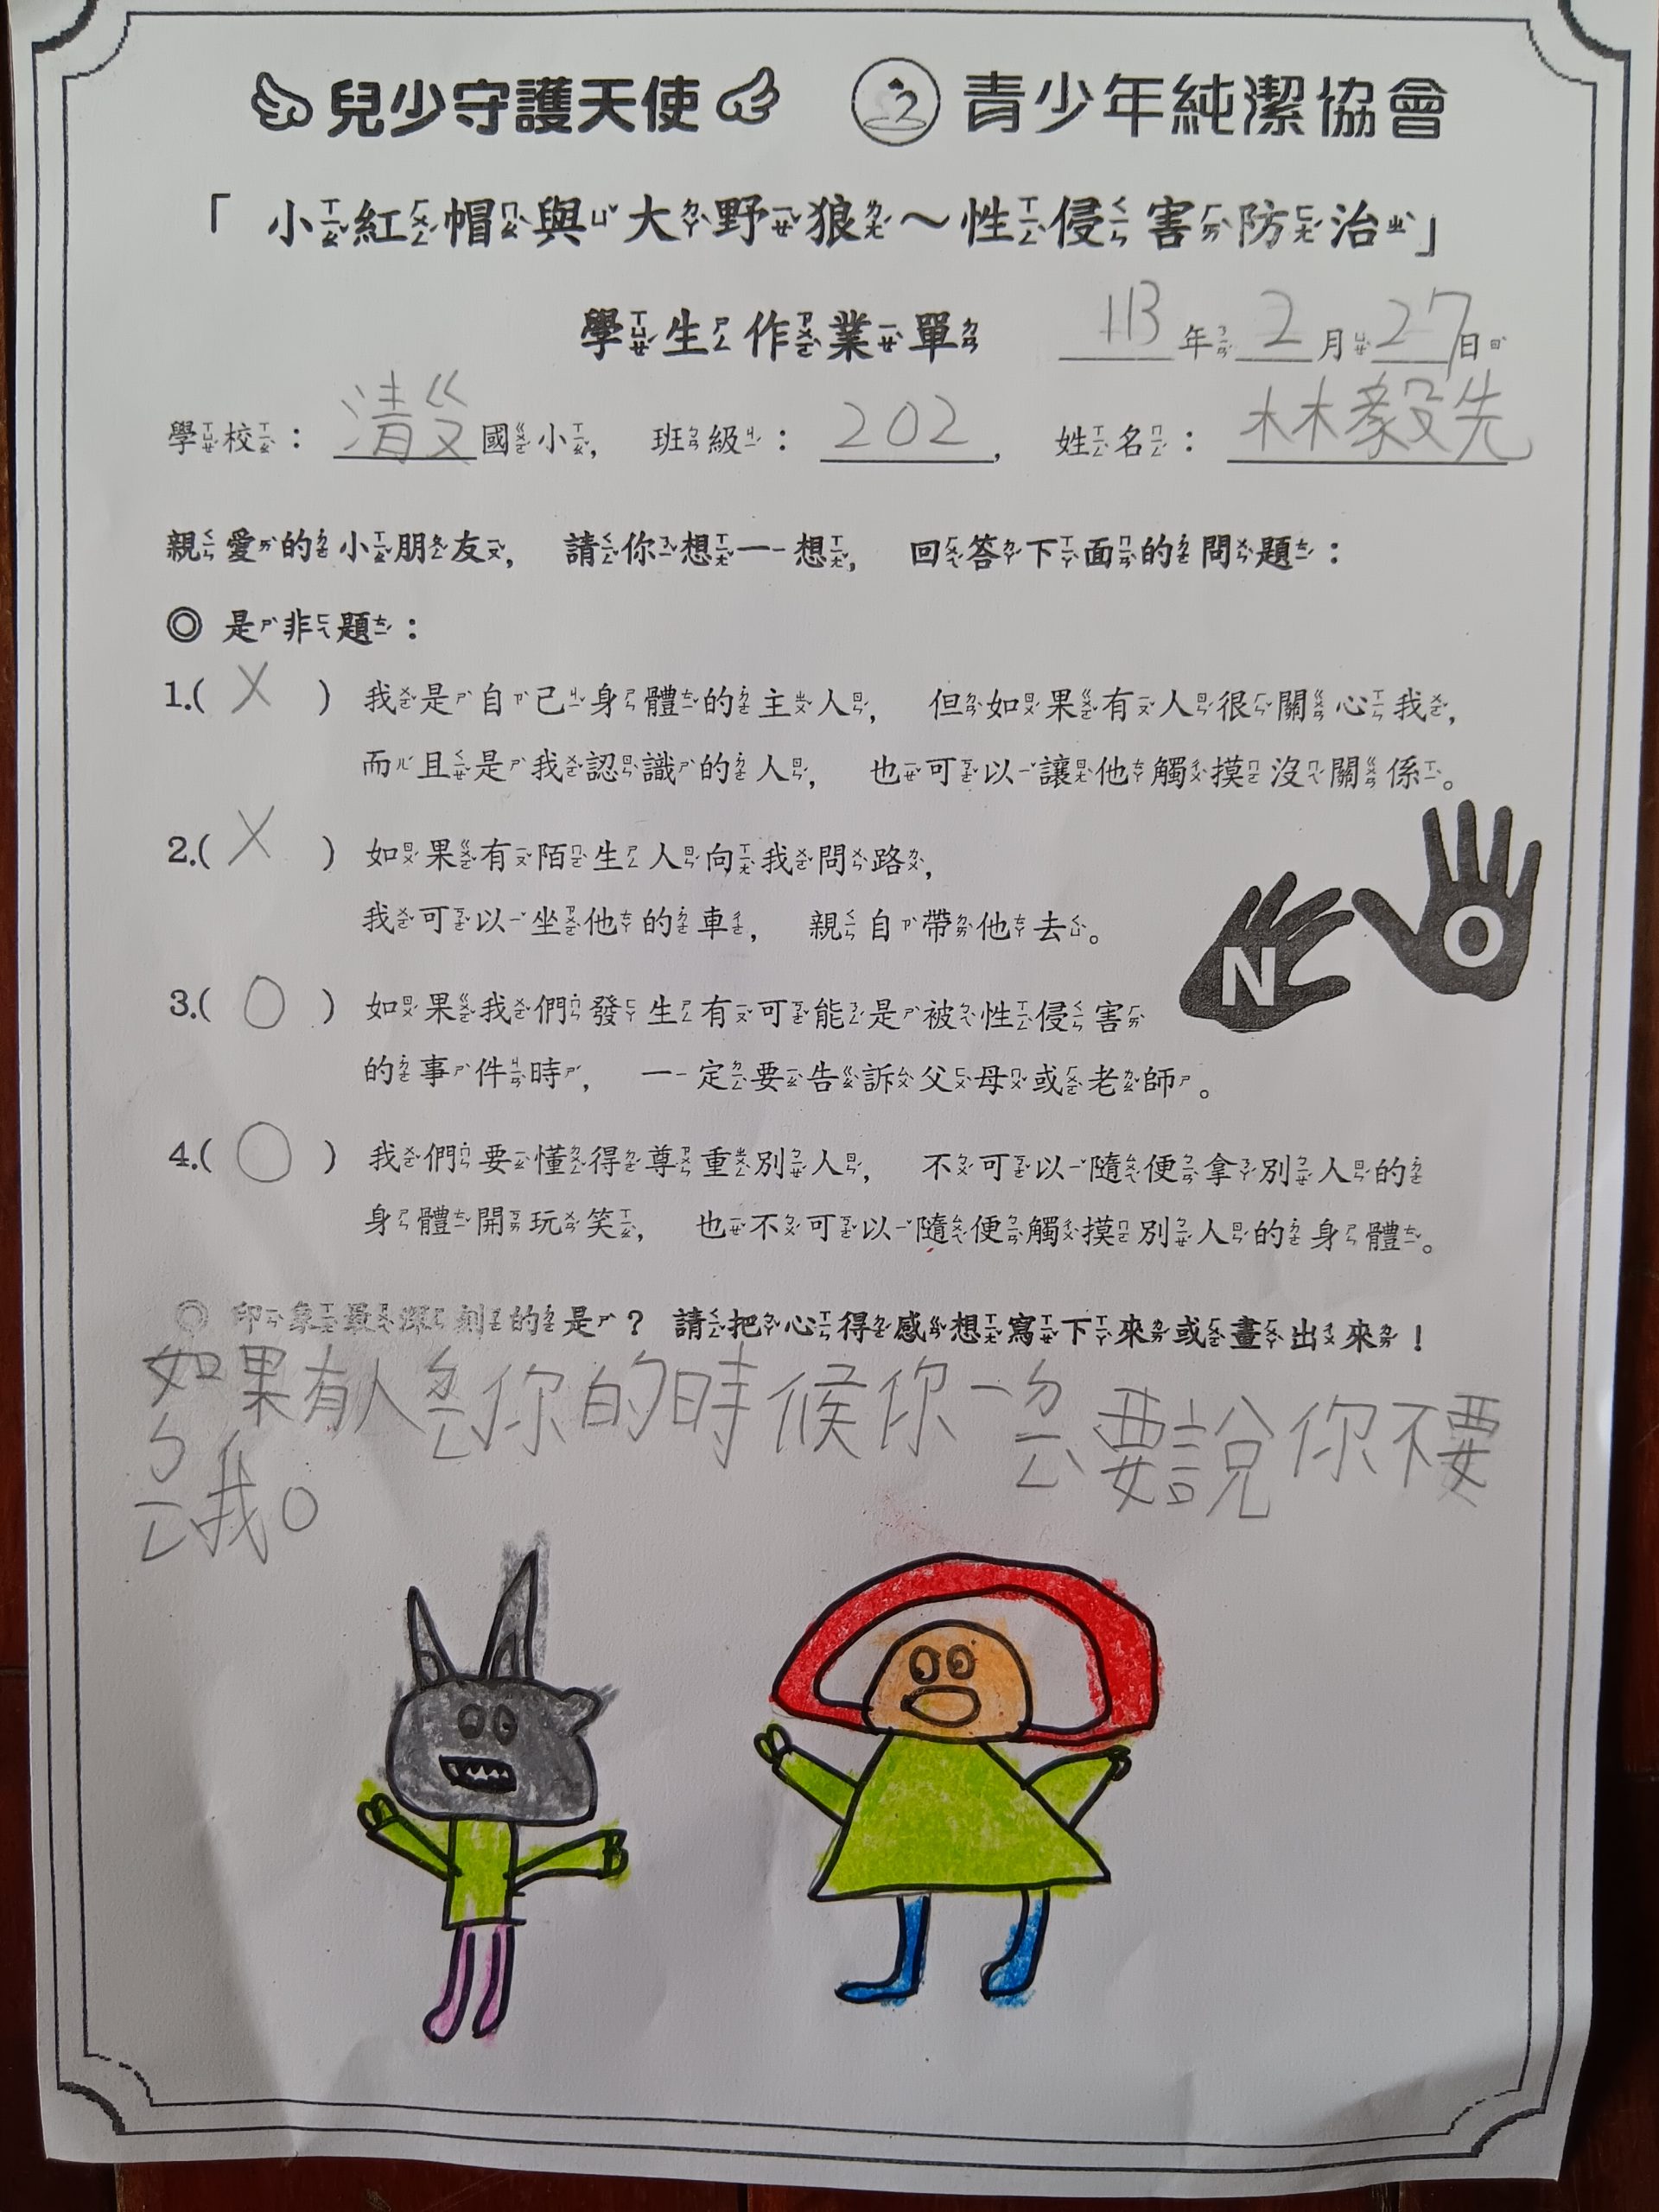 兒少守護天使 青少年純潔協會
「小紅帽與大野狼～性侵害防治」
學生作業單 113年2月27日
學校：清ㄍㄡ國小， 班級：202， 姓名：林毅先
親愛的小朋友， 請你想一想， 回答下面的問題：
◎ 是非題：
1.( X ) 我是自己身體的主人， 但如果有人很關心我，
而且是我認識的人， 也可以讓他觸摸沒關係。
2.( X ) 如果有陌生人向我問路，
我可以坐他的車， 親自帶他去。
N O
3.( O ) 如果我們發生有可能是被性侵害
的事件時， 一定要告訴父母或老師。
4.( O ) 我們要懂得尊重別人， 不可以隨便拿別人的
身體開玩笑， 也不可以隨便觸摸別人的身體。
◎ 印象最深刻的是？ 請把心得感想寫下來或畫出來！
如果有人ㄆㄥ你的時候你一ㄉㄧㄥ要說你不要
ㄅㄧㄥ我。